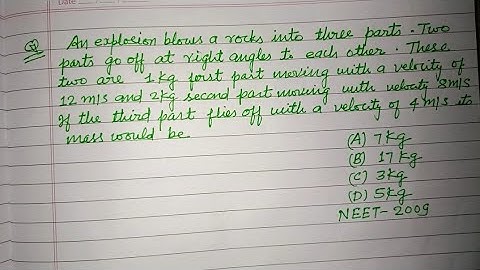 Date
Q) An explosion blows a rocks into three parts. Two
parts go off at right angles to each other. These
two are 1kg first part moving with a velocity of
12 m/s and 2kg second part moving with velocity 8m/s
If the third part flies off with a velocity of 4 m/s its
mass would be
(A) 7kg
(B) 17kg
(C) 3kg
(D) 5kg
NEET-2009